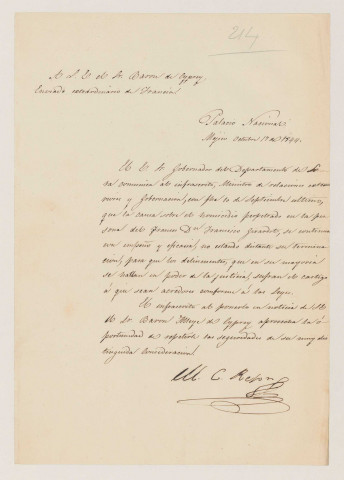 A S. E. el Sr. Baron de Cyprey,
Enviado extraordinario de Francia
Palacio Nacional
Mejico Octubre 1º de 1844.
El E. S. Gobernador del Departamento de
comunica al infrascrito, Ministro de relaciones exteriores
y Gobernacion, con fha de Septiembre ultimo,
que la causa sobre el homicidio perpetrado en la persona
del Frances Dn. Francisco se continua
con empeño y eficacia, no estando distante su terminacion,
para que los delincuentes, que en su mayoria
se hallan en poder de la justicia, sufran el castigo
á que sean acreedores conforme á las leyes.
El infrascrito al ponerlo en noticia de S. E.
el Sr. Baron Alleye de Cyprey aprovecha la oportunidad
de repetirle las seguridades de su muy distinguida
consideracion.
M. C. Rejon